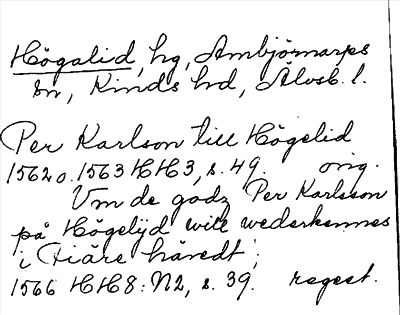 Högalid, hg, Ambjörnarps
sn, Kinds hd, Älvsb. l.
Per Karlson till Högelid
1562 o. 1563 HH3, s. 49. orig.
Vm de godz Per Karlsson
på Högelijd wile wederkennes
i Fiäre häredt;
1566 HH8: N2, s. 39. regest.